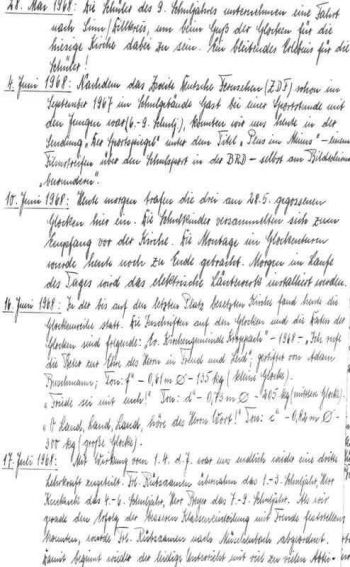 28. Mai 1968: Die Schüler des 9. Schuljahres unternehmen eine Fahrt
nach Sinn/Dillkreis, um beim Guß der Glocken für die
hiesige Kirche dabei zu sein. Ein bleibendes Erlebnis für die
Schüler!
4. Juni 1968: Nachdem das Zweite Deutsche Fernsehen (ZDF) schon im
September 1967 im Schulgebäude Gast bei einer Sportstunde mit
den Jungen war (6.-9. Schulj.), konnten wir uns heute in der
Sendung „Der Sportspiegel" unter dem Titel „Plus im Minus" – einem
Filmstreifen über den Schulsport in der BRD – selbst am Bildschirm
„bewundern".
10. Juni 1968: Heute morgen trafen die drei am 28.5. gegossenen
Glocken hier ein. Die Schulkinder versammelten sich zum
Empfang vor der Kirche. Die Montage im Glockenturm
wurde heute noch zu Ende gebracht. Morgen im Laufe
des Tages wird das elektrische Läutewerk installiert werden.
16. Juni 1968: In der bis auf den letzten Platz besetzten Kirche fand heute die
Glockenweihe statt. Die Inschriften auf den Glocken und die Daten der
Glocken sind folgende: Ev. Kirchengemeinde - 1968 - „Ich rufe
die Beter zur Ehre des Herrn in Freud und Leid", gestiftet von Adam
Buschmann; Ton: - 0,61 m Ø - 135 kg (kleine Glocke).
„Friede sei mit euch!" Ton: - 0,73 m Ø - 205 kg (mittlere Glocke).
„O Land, Land, Land, höre des Herrn Wort!" Ton: - 0,82 m Ø -
300 kg (große Glocke).
17. Juli 1968: Mit Wirkung vom 1.4. d.J. war uns endlich wieder eine dritte
Lehrkraft zugeteilt. Frl. übernahm das 1.-3. Schuljahr, Herr
das 4.-6. Schuljahr, Herr das 7.-9. Schuljahr. Als wir
gerade den Erfolg der besseren Klasseneinteilung mit Freude feststellen
konnten, wurde Frl. nach abgeordnet.
Damit beginnt wieder der leidige Unterricht mit viel zu vielen